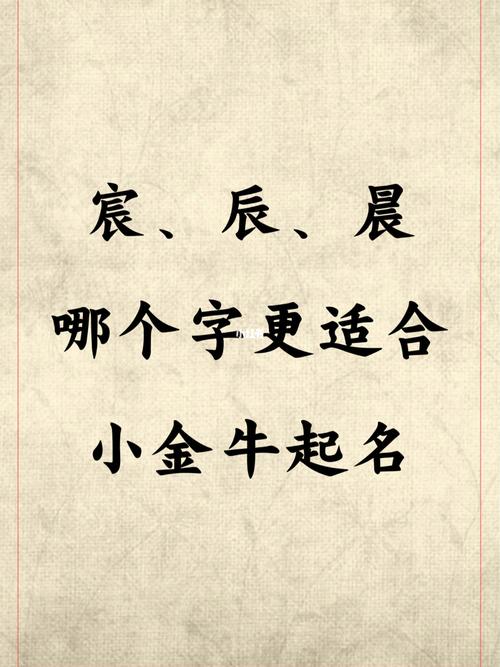 宸、辰、晨
哪个字更适合
小金牛起名